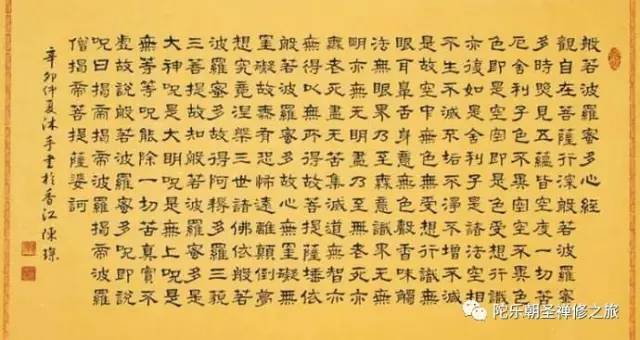 般若波羅蜜多心經
觀自在菩薩行深般若波羅蜜
多時照見五蘊皆空度一切苦
厄舍利子色不異空空不異色
色即是空空即是色受想行識
亦復如是舍利子是諸法空相
不生不滅不垢不淨不增不減
是故空中無色無受想行識無
眼耳鼻舌身意無色聲香味觸
法無眼界乃至無意識界無無
明亦無無明盡乃至無老死亦
無老死盡無苦集滅道無智亦
無得以無所得故菩提薩埵依
般若波羅蜜多故心無罣礙無
罣礙故無有恐怖遠離顛倒夢
想究竟涅槃三世諸佛依般若
波羅蜜多故得阿耨多羅三藐
三菩提故知般若波羅蜜多是
大神呪是大明呪是無上呪是
無等等呪能除一切苦真實不
虛故說般若波羅蜜多呪即說
呪曰揭帝揭帝波羅揭帝波羅
僧揭帝菩提薩婆訶
辛卯仲夏沐手書於香江陳琛
陀乐朝圣禅修之旅